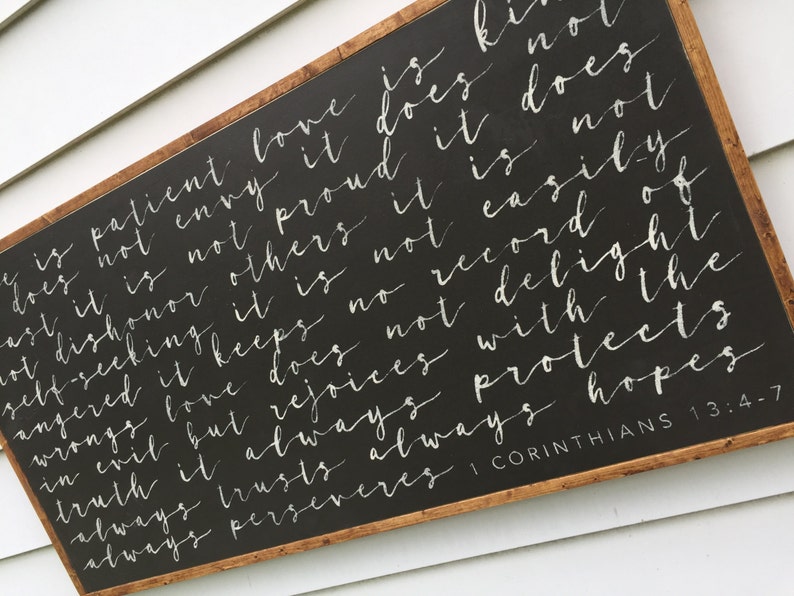 e is patient love is kin
does not envy it does not
ast it is not proud it does
not dishonor others it is not
self-seeking it is not easily
angered it keeps no record of
wrongs love does not delight
in evil but rejoices with the
truth it always protects
always trusts always hopes
always perseveres 1 CORINTHIANS 13:4-7